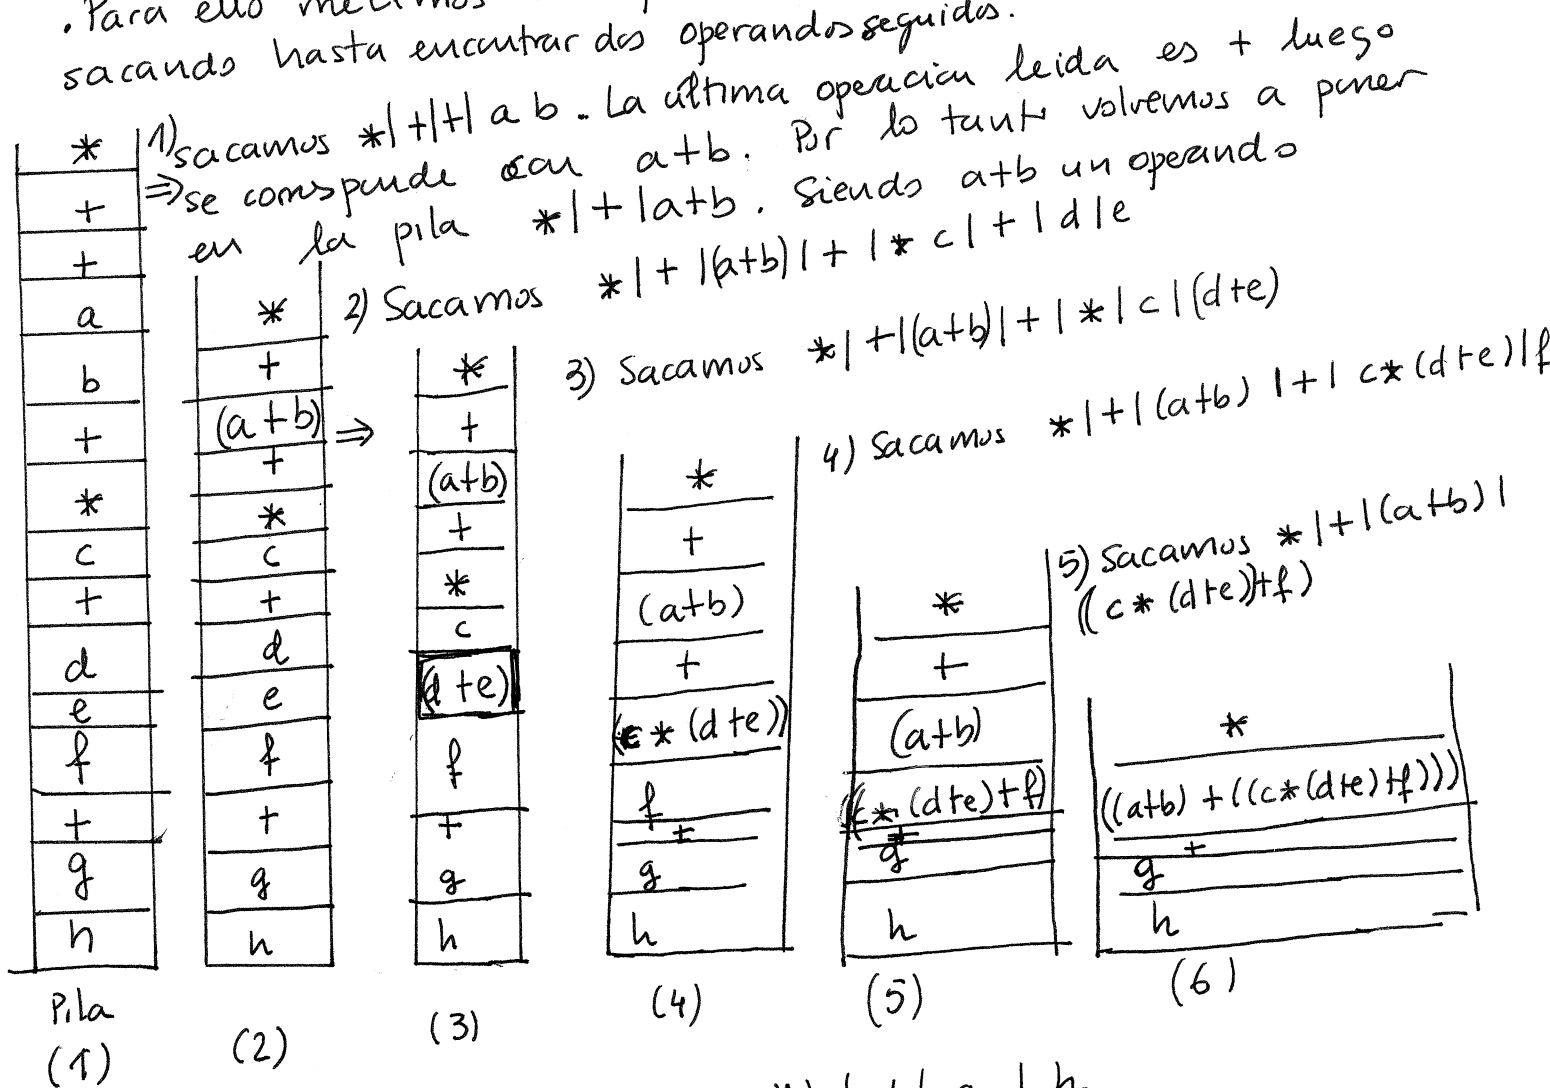 . Para ello metimos
sacando hasta encontrar dos operandos seguidos.
1) sacamos *|+|+| a b. La última operación leida es + luego
⇒ se corresponde con a+b. Por lo tanto volvemos a poner
en la pila *|+|a+b. Siendo a+b un operando
2) Sacamos *|+|(a+b)|+|* c|+|d|e
3) Sacamos *|+|(a+b)|+|*|c|(d+e)
4) Sacamos *|+|(a+b)|+| c*(d+e)|f
5) Sacamos *|+|(a+b)|
((c*(d+e))+f)
*
+
+
a
b
+
*
c
+
d
e
f
+
g
h
Pila
(1)
*
+
(a+b) ⇒
+
*
c
+
d
e
f
+
g
h
(2)
*
+
(a+b)
+
*
c
(d+e)
f
+
g
h
(3)
*
+
(a+b)
+
(c*(d+e))
f
+
g
h
(4)
*
+
(a+b)
((c*(d+e)+f)
+
g
h
(5)
*
((a+b)+((c*(d+e)+f)))
+
g
h
(6)